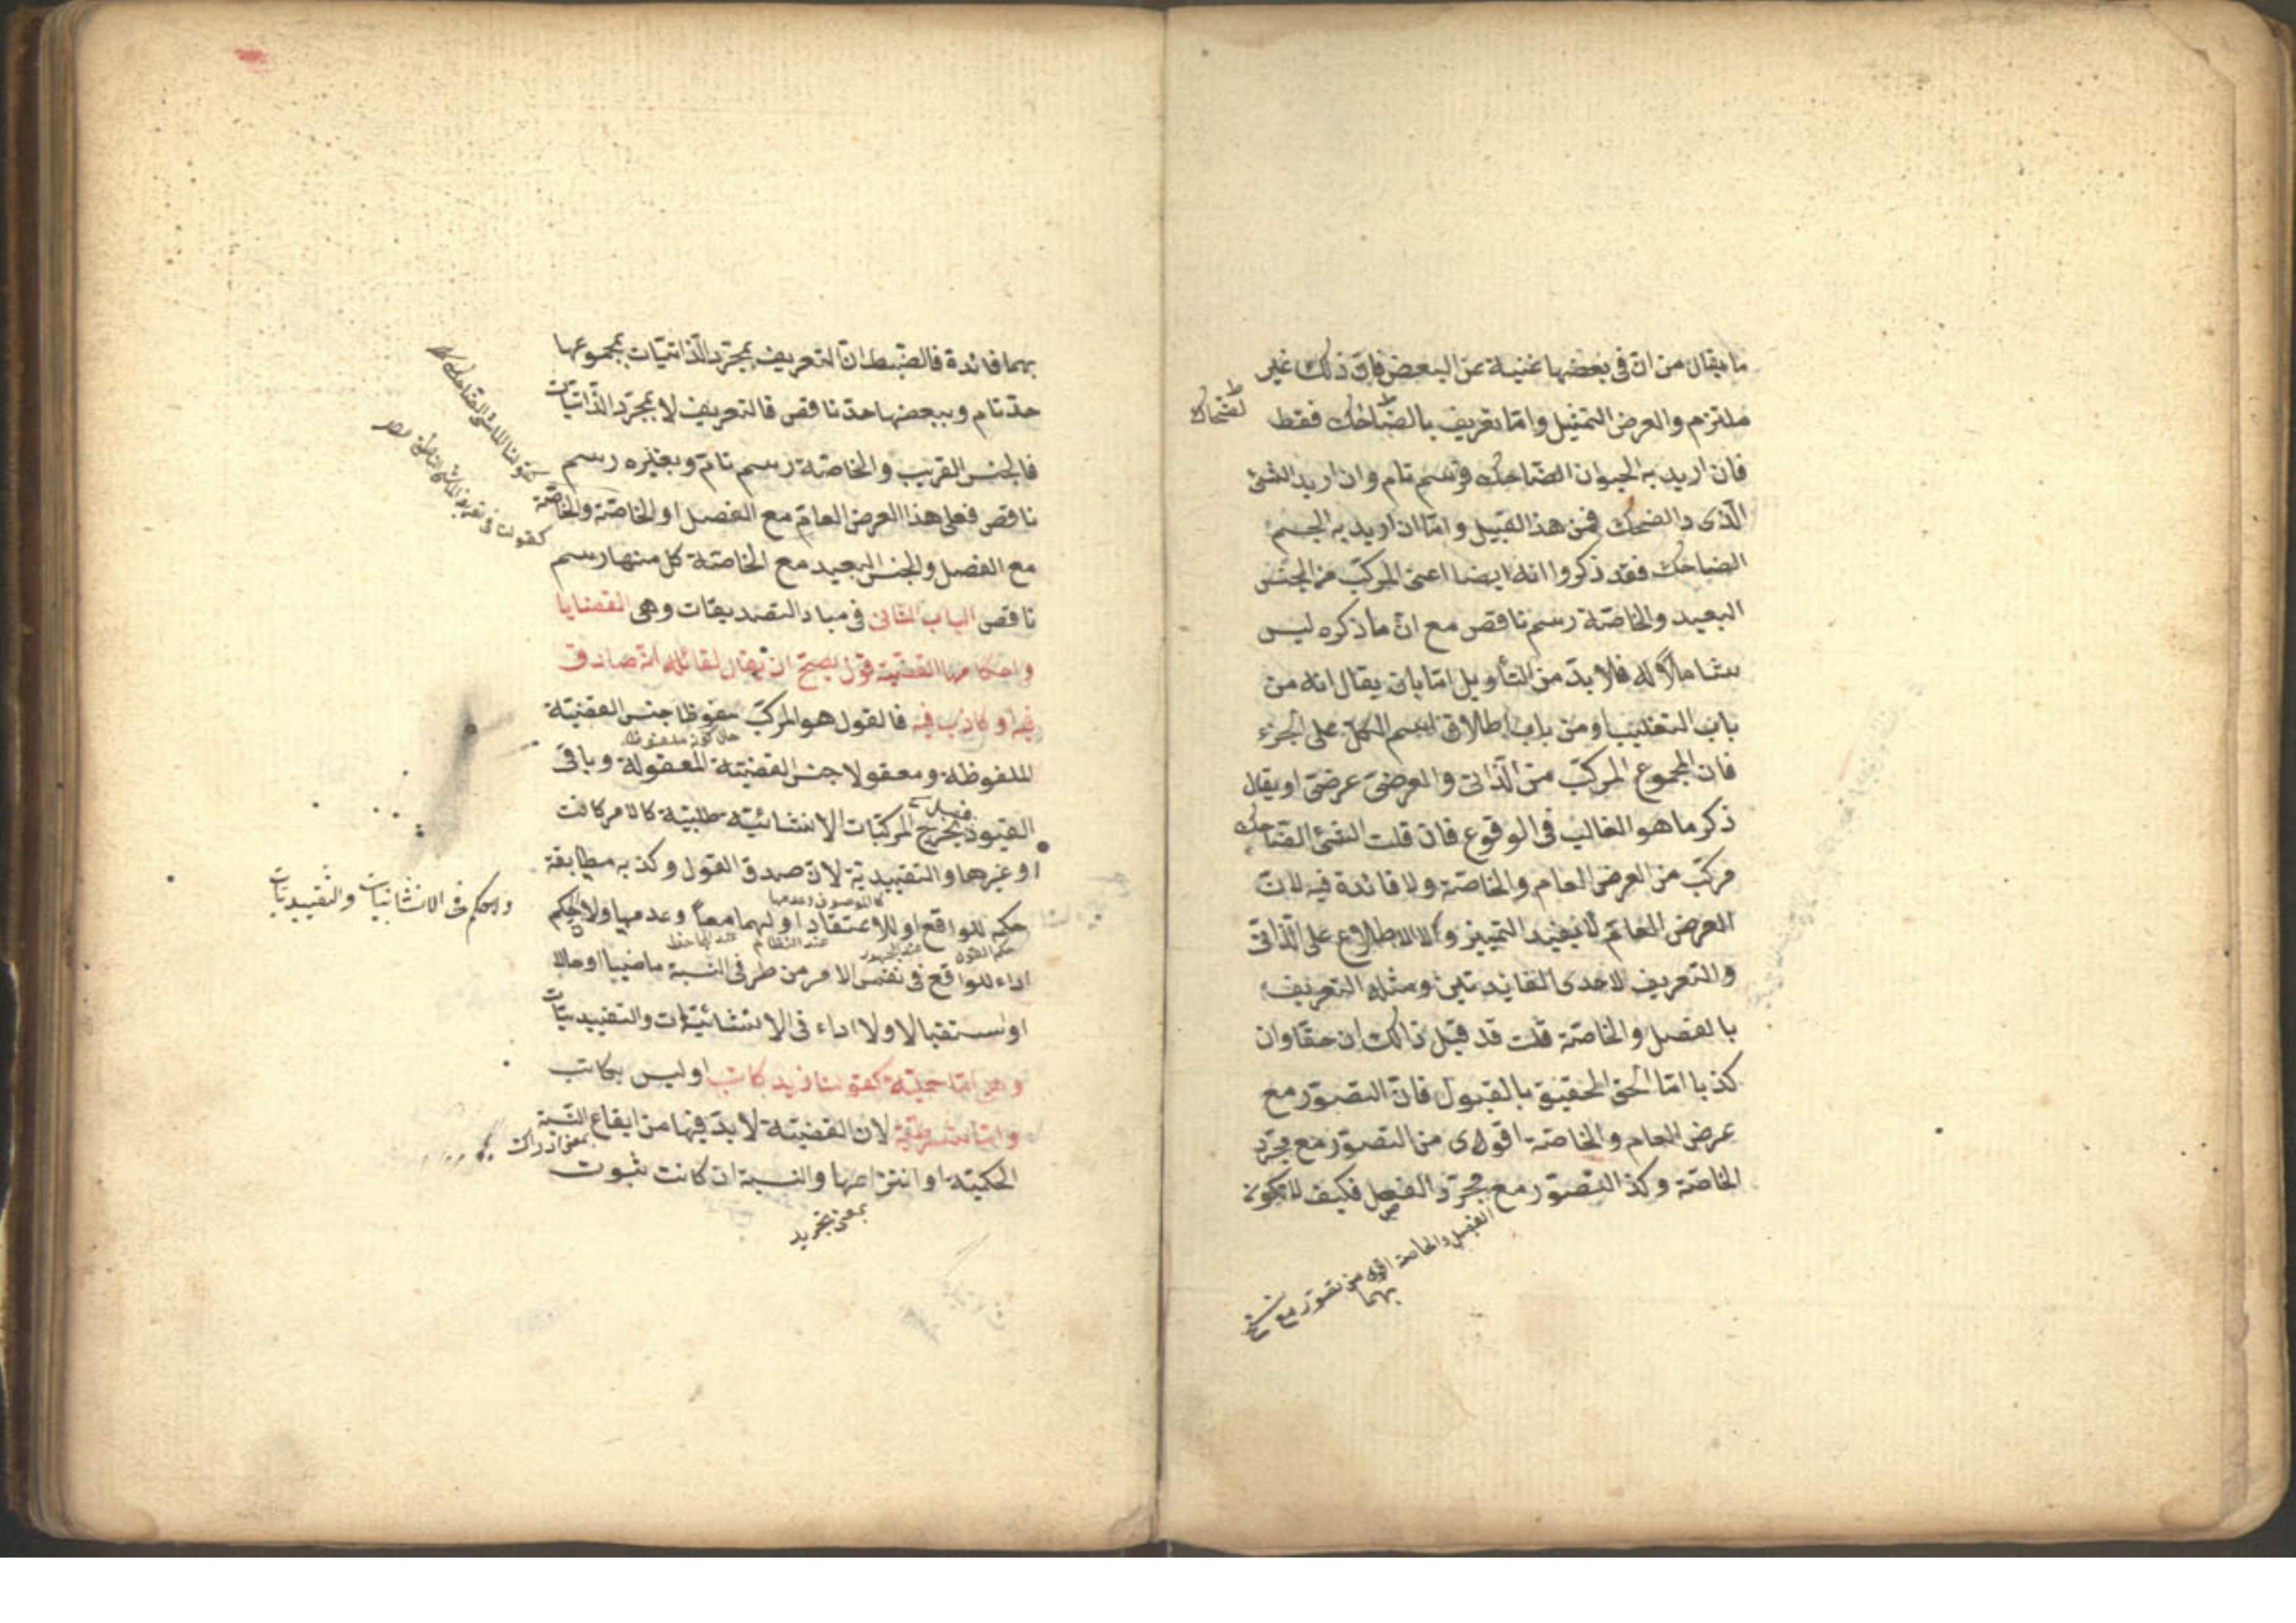 ما يقال من ان في بعضها غنية عن البعض فان ذلك غير
ملتزم والعرض التمثيل واما تعريف بالضاحك فقط
فان اريد به الحيوان الضاحك فرسم تام وان اريد الشئ
الذى له الضحك فمن هذا القبيل واما ان اريد به الجسم
الضاحك فقد ذكروا انه ايضا اعنى المركب من الجنس
البعيد والخاصة رسم ناقص مع ان ما ذكره ليس
شاملا له فلا بد من التأويل اما بان يقال انه من
باب التغليب او من باب اطلاق اسم الكل على الجزء
فان المجموع المركب من الذاتى والعرضى عرضى او يقال
ذكر ما هو الغالب فى الوقوع فان قلت الشئ الضاحك
مركب من العرض العام والخاصة ولا فائدة فيه لان
العرض العام لا يفيد التمييز ولا الاطلاع على الذاتى
والتعريف لاحدى الفائدتين ومثله التعريف
بالفصل والخاصة قلت قد قيل ذالك ان حقا وان
كذبا اما الحق الحقيق بالقبول فان التصور مع
عرض العام والخاصة اقوى من التصور مع مجرد
الخاصة وكذ التصور مع مجرد الفصل فكيف لا يكون
الفصل والخاصة اقوى من تصور مع
بهما
بهما فائدة فالضبط ان التعريف بمجرد الذاتيات بمجموعها
حد تام وببعضها حد ناقص فالتعريف لا بمجرد الذاتيات
فالجنس القريب والخاصة رسم تام وبغيره رسم
ناقص فعلى هذا العرض العام مع الفصل او الخاصة والخاصة
مع الفصل والجنس البعيد مع الخاصة كل منها رسم
ناقص الباب الثانى فى مباد التصديقات وهى القضايا
واحكامها القضية قول يصح ان يقال لقائله انه صادق
فيه او كاذب فيه فالقول هو المركب ملفوظا جنس القضية
حال كونه ملفوظا
الملفوظة ومعقولا جنس القضية المعقولة وباقى
القيود يخرج المركبات الانشائية طلبية كالامر كانت
او غيرها والتقييدية لان صدق القول وكذبه مطابقة
حكمه للواقع او للاعتقاد او لهما معا وعدمها ولا حكم
عند النظام عند الجاحظ
والحكم فى الانشائيات والتقييديات
اداء للواقع فى نفس الامر من طرفى النسبة ماضيا او حالا
او استقبالا ولا اداء فى الانشائيات والتقييديات
وهى اما حملية كقولنا زيد كاتب او ليس بكاتب
واما شرطية لان القضية لا بد فيها من ايقاع النسبة
بمعنى ادراك
الحكمية او انتزاعها والنسبة ان كانت ثبوت
بمعنى تجريد